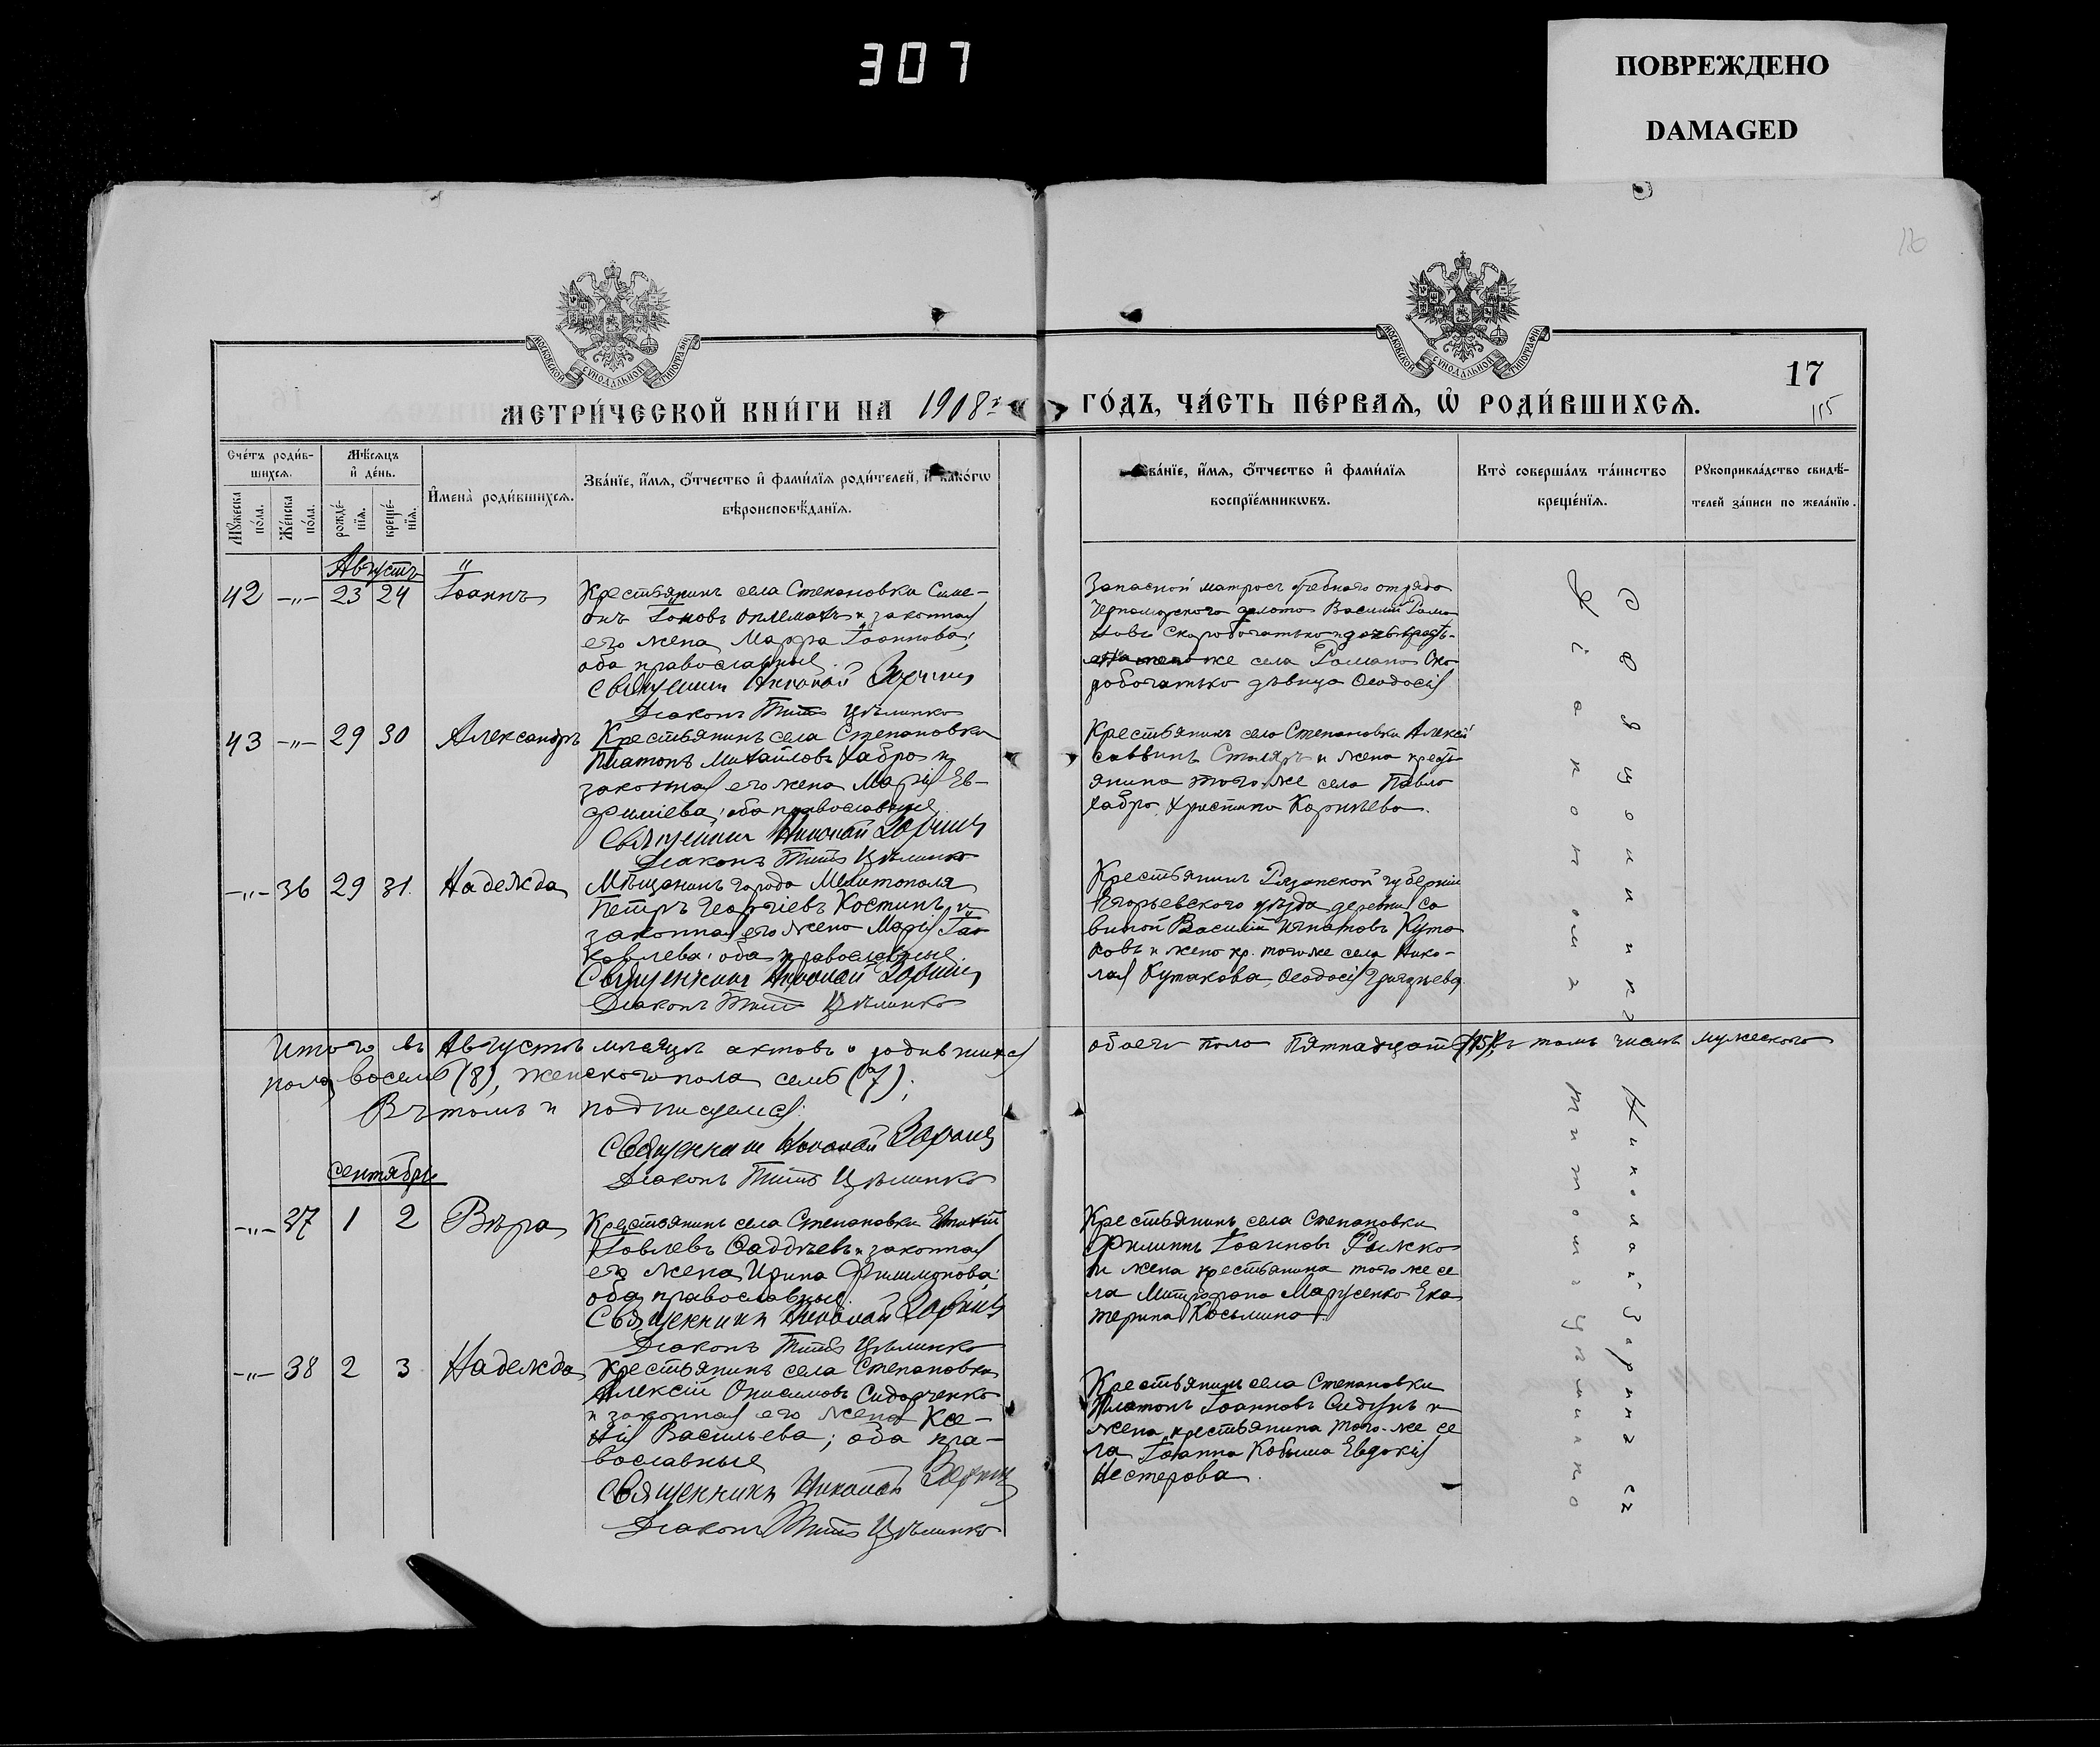 307
ПОВРЕЖДЕНО
DAMAGED
16
17
115
МОСКОВСКОЙ СУНОДАЛЬНОЙ ТИПОГРАФІИ
МОСКОВСКОЙ СУНОДАЛЬНОЙ ТИПОГРАФІИ
МЕТРИ́ЧЕСКОЙ КНИ́ГИ НА 1908 г.
ГО́ДЪ, ЧА́СТЬ ПЕ́РВАѦ, Ѡ РОДИ́ВШИХСѦ.
Сче́тъ роди́в-
шихсѧ.
Мꙋ́жеска по́ла.
Же́нска по́ла.
Мѣ́сѧцъ
и де́нь.
рожде́-
нїѧ.
креще́-
нїѧ.
И҆мена̀ роди́вшихсѧ.
Зва́нїе, и҆́мѧ, ѻ҆́тчество и҆ фами́лїѧ роди́телей, и҆ како́гѡ
вѣроисповѣ́данїѧ.
Зва́нїе, и҆́мѧ, ѻ҆́тчество и҆ фами́лїѧ
воспрїе́мникѡвъ.
Кто̀ соверша́лъ та́инство
креще́нїѧ.
Рꙋкоприкла́дство свидѣ́-
телей за́писи по жела́нїю.
Августъ
42 -„- 23 24 Іоаннъ
Крестьянинъ села Степановки Симе-
онъ и законная
его жена Марфа Іоаннова;
оба православные.
Священникъ Николай Зоринъ
Діаконъ Титъ Цѣлинко
Запасной матросъ отряда
Черноморского флота Василій Рома
новъ Скоробогатько и дочь крест-
же села Романа Ско
робогатько дѣвица Ѳеодосія
43 -„- 29 30 Александръ
Крестьянинъ села Степановки
Платонъ Михайловъ Хабро и
законная его жена Марія Ев-
фиміева; оба православные
Священникъ Николай Зоринъ
Діаконъ Титъ Цѣлинко
Крестьянинъ села Степановки Алексій
Саввинъ Столяръ и жена крест
янина того же села Павла
Хабро, Христина Корнѣева.
-„- 36 29 31. Надежда
Мѣщанинъ города Мелитополя
Петръ Георгіевъ Костинъ и
законная его жена Марія Іа
ковлева; оба православные.
Священникъ Николай Зоринъ
Діаконъ Титъ Цѣлинко
Крестьянинъ Рязанской губерніи
Егорьевского уѣзда деревни Са
виной Василій Игнатовъ Кута
ковъ и жена кр. того же села Нико-
лая Кутакова, Ѳеодосія Григорьева
Итого въ Августѣ мѣсяцѣ актовъ о родившихся
обоего пола Пятнадцать (15), въ томъ числѣ мужеского
пола восемь (8), женского пола семь (7);
Въ томъ и подписуемся:
Священникъ Николай Зоринъ
Діаконъ Титъ Цѣлинко
Сентябрь
-„- 37 1 2 Вѣра
Крестьянинъ села Степановки
Іовлевъ Ѳаддѣевъ и законная
его жена Ирина Филимонова;
оба православные.
Священникъ Николай Зоринъ
Діаконъ Титъ Цѣлинко
Крестьянинъ села Степановки
Филиппъ Іоанновъ Рыжко
и жена крестьянина того же се
ла Митрофана Марусенко Ека
терина Косьмина.
-„- 38 2 3 Надежда
Крестьянинъ села Степановки
Алексій Онисимовъ Сидорченко
и законная его жена Ксе-
нія Васильева; оба пра-
вославные
Священникъ Николай Зоринъ
Діаконъ Титъ Цѣлинко
Крестьянинъ села Степановки
Платонъ Іоанновъ и
жена крестьянина того-же се
ла Іоанна Кобыша Евдокія
Нестерова.
Священникъ Николай Зоринъ съ
Діакономъ Титомъ Цѣлинко